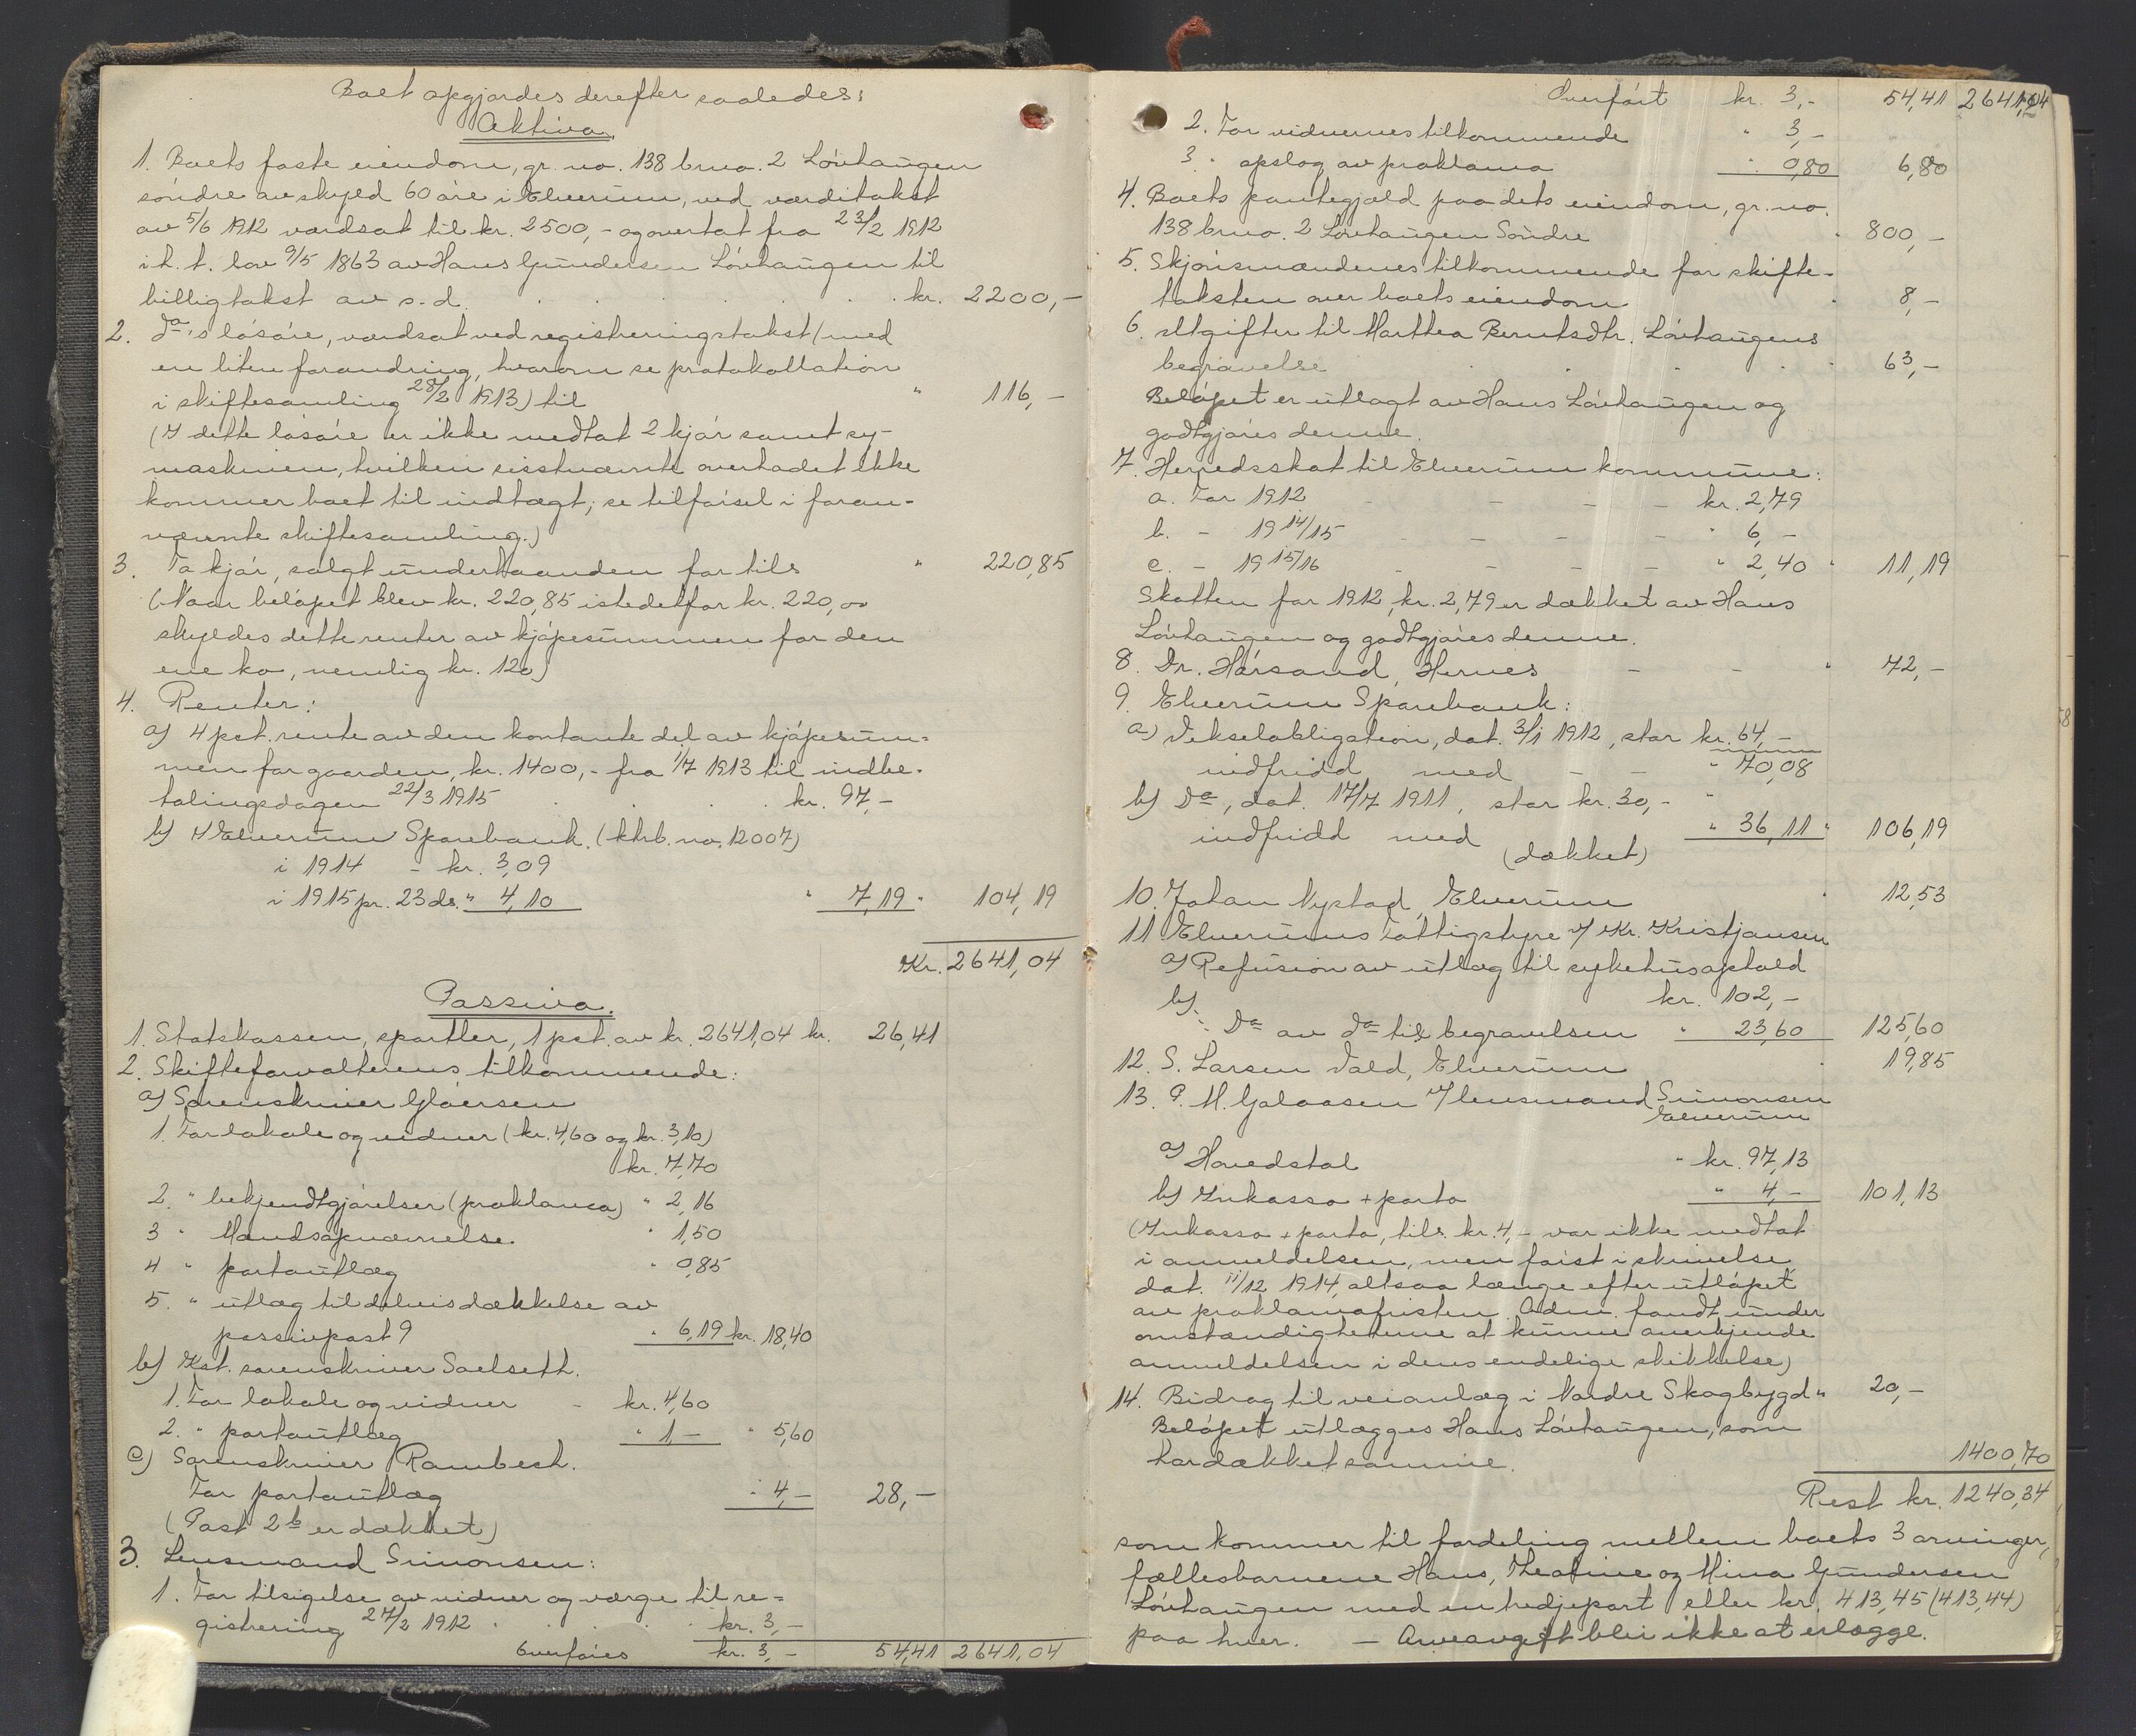 Boet opgjordes derefter saaledes:
Aktiva.
1. Boets faste eiendom, gr. no. 138 brno. 2 Lövhaugen
söndre av skyld 60 öre i Elverum, ved værditakst
av 5/6 1912 værdsat til kr. 2500,- og overtat fra 23/2 1912
i h. t. lov 9/5 1863 av Hans Gundersen Lövhaugen til
billigtakst av s. d. kr. 2200,-
2. Do's lösöre, værdsat ved registreringstakst (med
en liten forandring, hvorom se protokollation
i skiftesamling 28/2 1913) til " 116,-
(I dette lösöre er ikke medtat 2 kjör samt sy-
maskinen, hvilken sisstnævnte overhodet ikke
kommer boet til indtægt; se tilförsel i foran-
nævnte skiftesamling.)
3. To kjör, solgt underhaanden for tils " 220,85
(Naar belöpet blev kr. 220,85 istedetfor kr. 220,00
skyldes dette renter av kjöpesummen for den
ene ko, nemlig kr. 120)
4. Renter:
a) 4 pct. rente av den kontante del av kjöpesum-
men for gaarden, kr. 1400,- fra 1/7 1913 til indbe-
talingsdagen 22/3 1915 kr. 97,-
b) I Elverum Sparebank. (ktrb. no. 12007)
i 1914 - kr. 3,09
i 1915 pr. 23 ds. " 4,10 " 7,19 " 104,19
Kr. 2641,04
Passiva.
1. Statskassen, sportler, 1 pct. av kr. 2641,04 kr. 26,41
2. Skifteforvalterens tilkommende:
a) Sorenskriver Glöersen
1. For lokale og vidner (kr. 4,60 og kr. 3,10)
kr. 7,70
2. " bekjendtgjörelser (proklama) " 2,16
3 " Mandsopnævnelse " 1,50
4 " portoutlæg " 0,85
5. " utlæg til delvis dækkelse av
passivpost 9 " 6,19 kr. 18,40
b) Kst. sorenskriver Saelseth.
1. For lokale og vidner - kr. 4,60
2. " portoutlæg " 1,- " 5,60
c) Sorenskriver Rambech.
For portoutlæg " 4,- 28,-
(Post 2b er dækket)
3. Lensmand Simonsen:
1. For tilsigelse av vidner og værge til re-
gistrering 27/2 1912 kr. 3,-
Overföres kr. 3,- 54,41 2641,04
Overfört kr. 3,- 54,41 2641,04
2. For vidnernes tilkommende " 3,-
3 " opslag av proklama " 0,80 6,80
4. Boets pantegjæld paa dets eiendom, gr. no.
138 brno. 2 Lövhaugen Söndre " 800,-
5. Skjönsmændenes tilkommende for skifte-
taksten over boets eiendom " 8,-
6. Utgifter til Marthea Berntsdtr. Lövhaugens
begravelse " 63,-
Belöpet er utlagt av Hans Lövhaugen og
godtgjöres denne.
7. Herredsskat til Elverum kommune:
a. For 1912 - - - kr. 2,79
b. - 1914/15 - - - - " 6,-
c. - 1915/16 - - - - " 2,40 " 11,19
Skatten for 1912, kr. 2,79 er dækket av Hans
Lövhaugen og godtgjöres denne.
8. Dr. Hörsand, Hernes - - " 72,-
9. Elverum Sparebank:
a) Vekselobligation, dat. 3/1 1912, stor kr. 64,-
indfridd med - - " 70,08
b) Do, dat. 17/7 1911, stor kr. 30,- "
indfridd med " 36,11 " 106,19
(dækket)
10. Johan Nystad, Elverum " 12,53
11 Elverums Fattigstyre v/ Kr. Kristjansen
a) Refusion av utlæg til sykehusophold
kr. 102,-
b) Do av do til begravelsen " 23,60 125,60
12. S. Larsen Vald, Elverum " 19,85
13. P. M. Galaasen v/ lensmand Simonsen
Elverum
a) Hovedstol " kr. 97,13
b) Inkasso + porto " 4,- 101,13
(Inkasso + porto, tils. kr. 4,- var ikke medtat
i anmeldelsen, men först i skrivelse
dat. 11/12 1914, altsaa længe efter utlöpet
av proklamafristen. Adm. fandt under
omstændigheterne at kunne anerkjende
anmeldelsen i dens endelige skikkelse)
14. Bidrag til veianlæg i Nordre Skogbygd " 20,-
Belöpet utlægges Hans Lövhaugen, som
har dækket samme. 1400,70
Rest kr. 1240,34
som kommer til fordeling mellem boets 3 arvinger,
fællesbarnene Hans, Theoline og Mina Gundersen
Lövhaugen med en tredjepart eller kr. 413,45 (413,44)
paa hver. - Arveavgift blir ikke at erlægge.